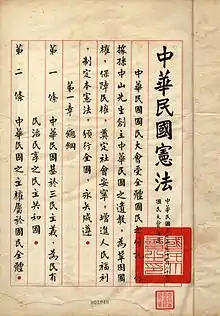 中華民國憲法
中華民國
國民大會
中華民國國民大會受全體國民之
據孫中山先生創立中華民國之遺教，為鞏固國
權，保障民權，奠定社會安寧，增進人民福利
，制定本憲法，頒行全國，永矢咸遵。
第一章 總綱
第一條 中華民國基於三民主義，為民有
民治民享之民主共和國。
第二條 中華民國之主權屬於國民全體。